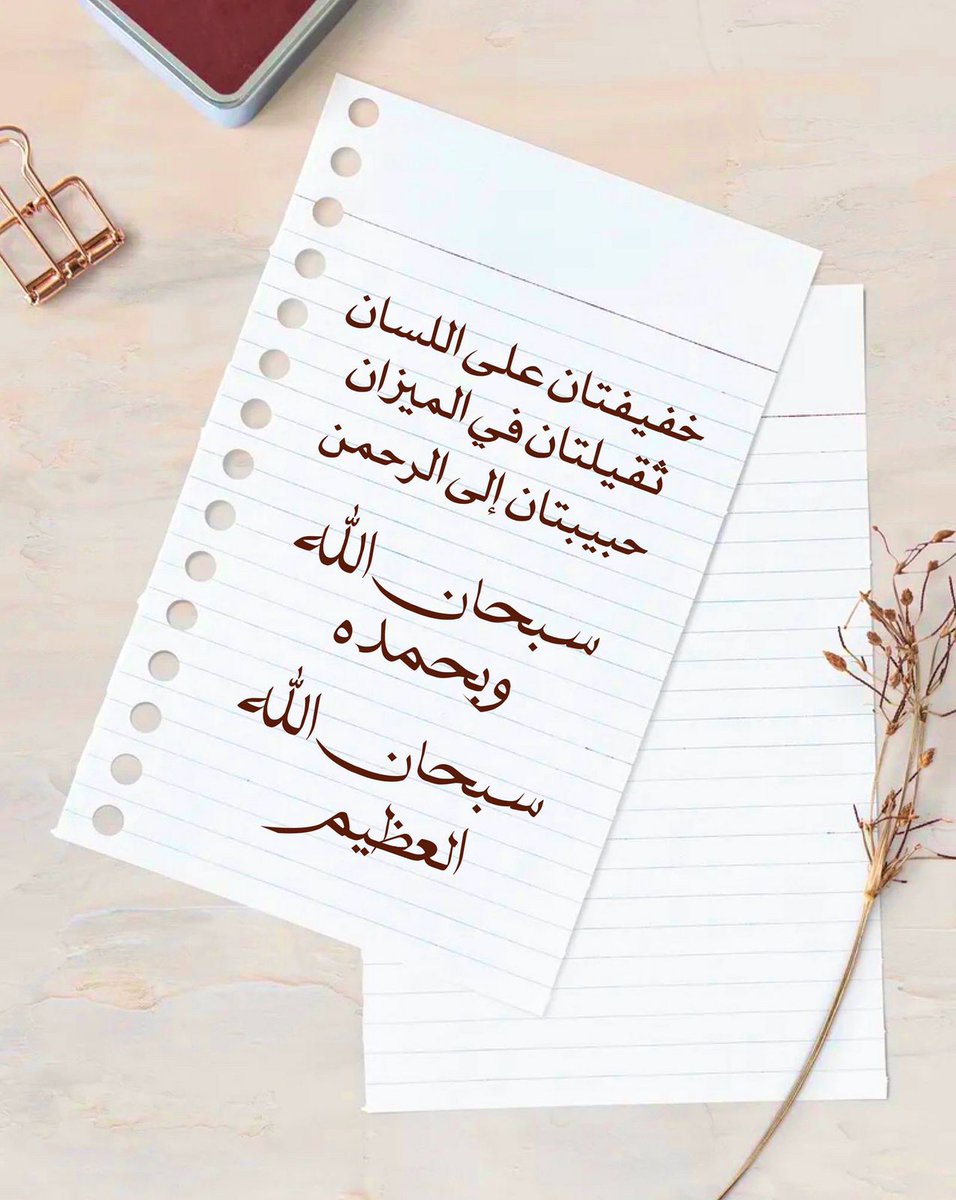 خفيفتان على اللسان
ثقيلتان في الميزان
حبيبتان إلى الرحمن
سبحان الله
وبحمده
سبحان الله
العظيم